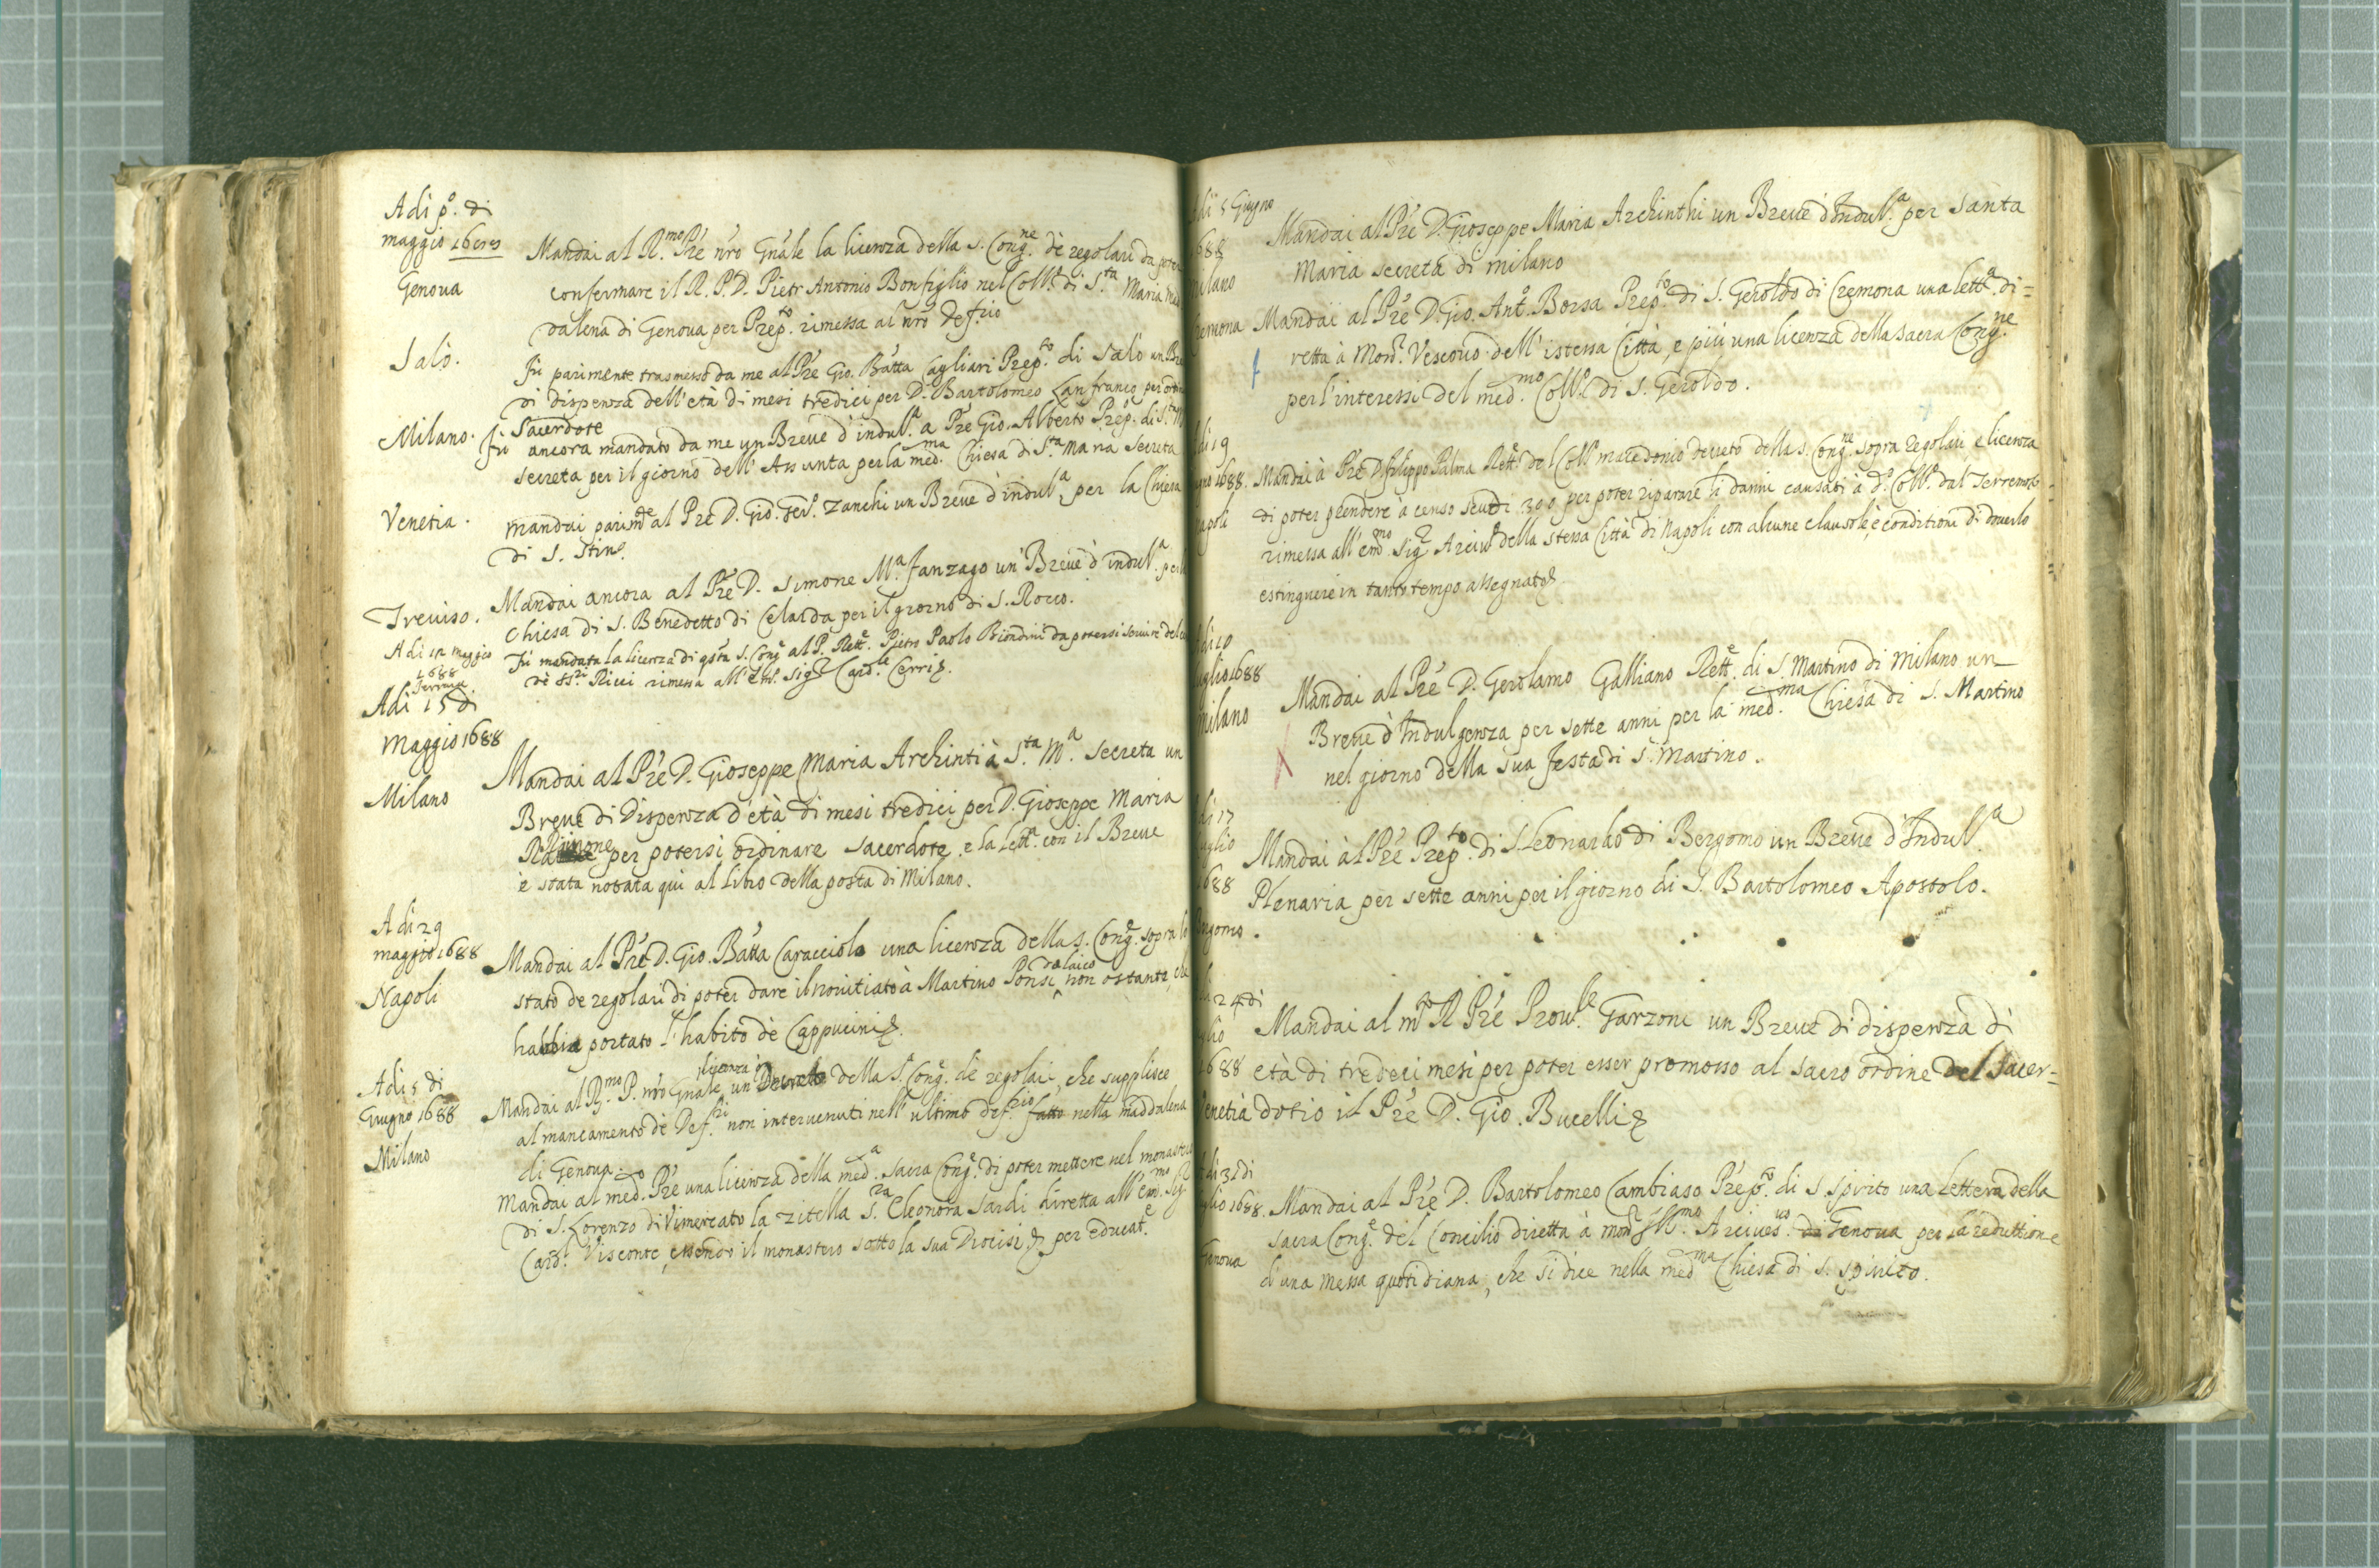 Adi pº. di
maggio
Genova
Mandai al R.mo Pre nro Gnale la licenza della S. Cong.ne dè regolari da poter
confermare il R. P. D. Pietr Antonio Bonfiglio nel Coll.º di S.ta Maria Mad
dalena di Genova per Prep.to rimessa al nro Def.rio
Salò.
Fù parimente trasmesso da me al Pre Gio. Batta Cagliari Prep.to di Salò un Bre
di dispenza dell'età di mesi tredici per D. Bartolomeo Lanfranco per
Sacerdote
Milano.
Fù ancora mandato da me un Breve d'indul.a a Pre Gio. Alberto Prep.º di S.ta M
secreta per il giorno dell'Assunta per la med.ma Chiesa di S.ta Maria Secreta
Venetia.
Mandai parim.te al Pre D. Gio. Zanchi un Breve d'indul.a per la Chiesa
di S. Stin
Treviso.
Mandai ancora al Pre D. Simone M.a Fanzago un Breve d'indul.a per la
Chiesa di S. Benedetto di Celarda per il giorno di S. Rocco.
Adi maggio
1688
Fù mandata la licenza di qsta S. Cong. al P. Rett.e Pietro Paolo Biondini da potersi servire del
dè Ss.ri Ricci rimessa all'Em. Sig.r Card.le Cerri
Adi 15 di
Maggio 1688
Milano
Mandai al Pre D. Gioseppe Maria Archinti à S.ta M.a Secreta un
Breve di Dispenza d'età di mesi tredici per D. Gioseppe Maria
per potersi ordinare Sacerdote. e la lett.a con il Breve
è stata notata qui al libro della posta di Milano.
Adi 29
maggio 1688
Napoli
Mandai al Pre D. Gio. Batta Caracciolo una licenza della S. Cong.e sopra lo
stato de regolari di poter dare il novitiato à Martino Ponsi da laico non ostante che
habbia portato l'habito dè Cappucini
Adi 5 di
Giugno 1688
Milano
Mandai al R.mo P. nro Gnale un licenza ò Decreto della S.a Cong.e dè regolari, che supplisce
al mancamento dè Def.ri non intervenuti nell'ultimo def.rio fatto nella Maddalena
di Genova.
Mandai al med.º Pre una licenza della med.a Sacra Cong.e di poter mettere nel monastero
di S. Lorenzo di Vimercato la zitella S.ra Eleonora Sardi diretta all'em.mo Sig.r
Card.l Visconte, essendo il monastero sotto la sua Diocisi per educat.e
di 5 Giugno
688
ilano
Mandai al Pre D. Gioseppe Maria Archinthi un Breve d'Indul.a per Santa
Maria secreta di milano
remona
Mandai al Pre D. Gio. Ant.º Borsa Prep.to di S. Geroldo di Cremona una lett.a di=
retta à Mon.r Vescovo dell'istessa Città, e più una licenza della Sacra Cong.ne
per l'interessi del med.mo Coll.º di S. Geroldo.
di 19
gno 1688.
apoli
Mandai à Pre D. Filippo Palma Rett.e del Coll.º macedonio decreto della S. Cong.ne sopra Regolari e licenza
di poter prendere à censo scudi 300 per poter riparare li danni causati à d.º Coll.º dal Terremoto
rimessa all'em.mo Sig.r Arciv.º della stessa Città di Napoli con alcune clausole, e conditioni di doverlo
estinguere in tanto tempo assegnato
di 10
uglio 1688
Milano
Mandai al Pre D. Gerolamo Galliano Rett.e di S. Martino di Milano un
Breve d'Indulgenza per sette anni per la med.ma Chiesa di S. Martino
nel giorno della sua festa di S. Martino.
di 17
uglio
688
ergomo.
Mandai al Pre Prep.to di S. Leonardo di Bergomo un Breve d'Indul.a
Plenaria per sette anni per il giorno di S. Bartolomeo Apostolo.
di 24 di
glio
1688
enetia
Mandai al m.to R Pre Prov.le Garzoni un Breve di dispenza di
età di tredeci mesi per poter esser promosso al sacro ordine del Sacer=
dotio il Pre D. Gio. Bucelli
di 31 di
glio 1688.
Genova
Mandai al Pre D. Bartolomeo Cambiaso Prep.to di S. Spirito una lettera della
Sacra Cong.e del Concilio diretta à mon.r Ill.mo Arcives.vo di Genova per la reduttione
d una messa quotidiana, che si dice nella med.ma Chiesa di S. Spirito.